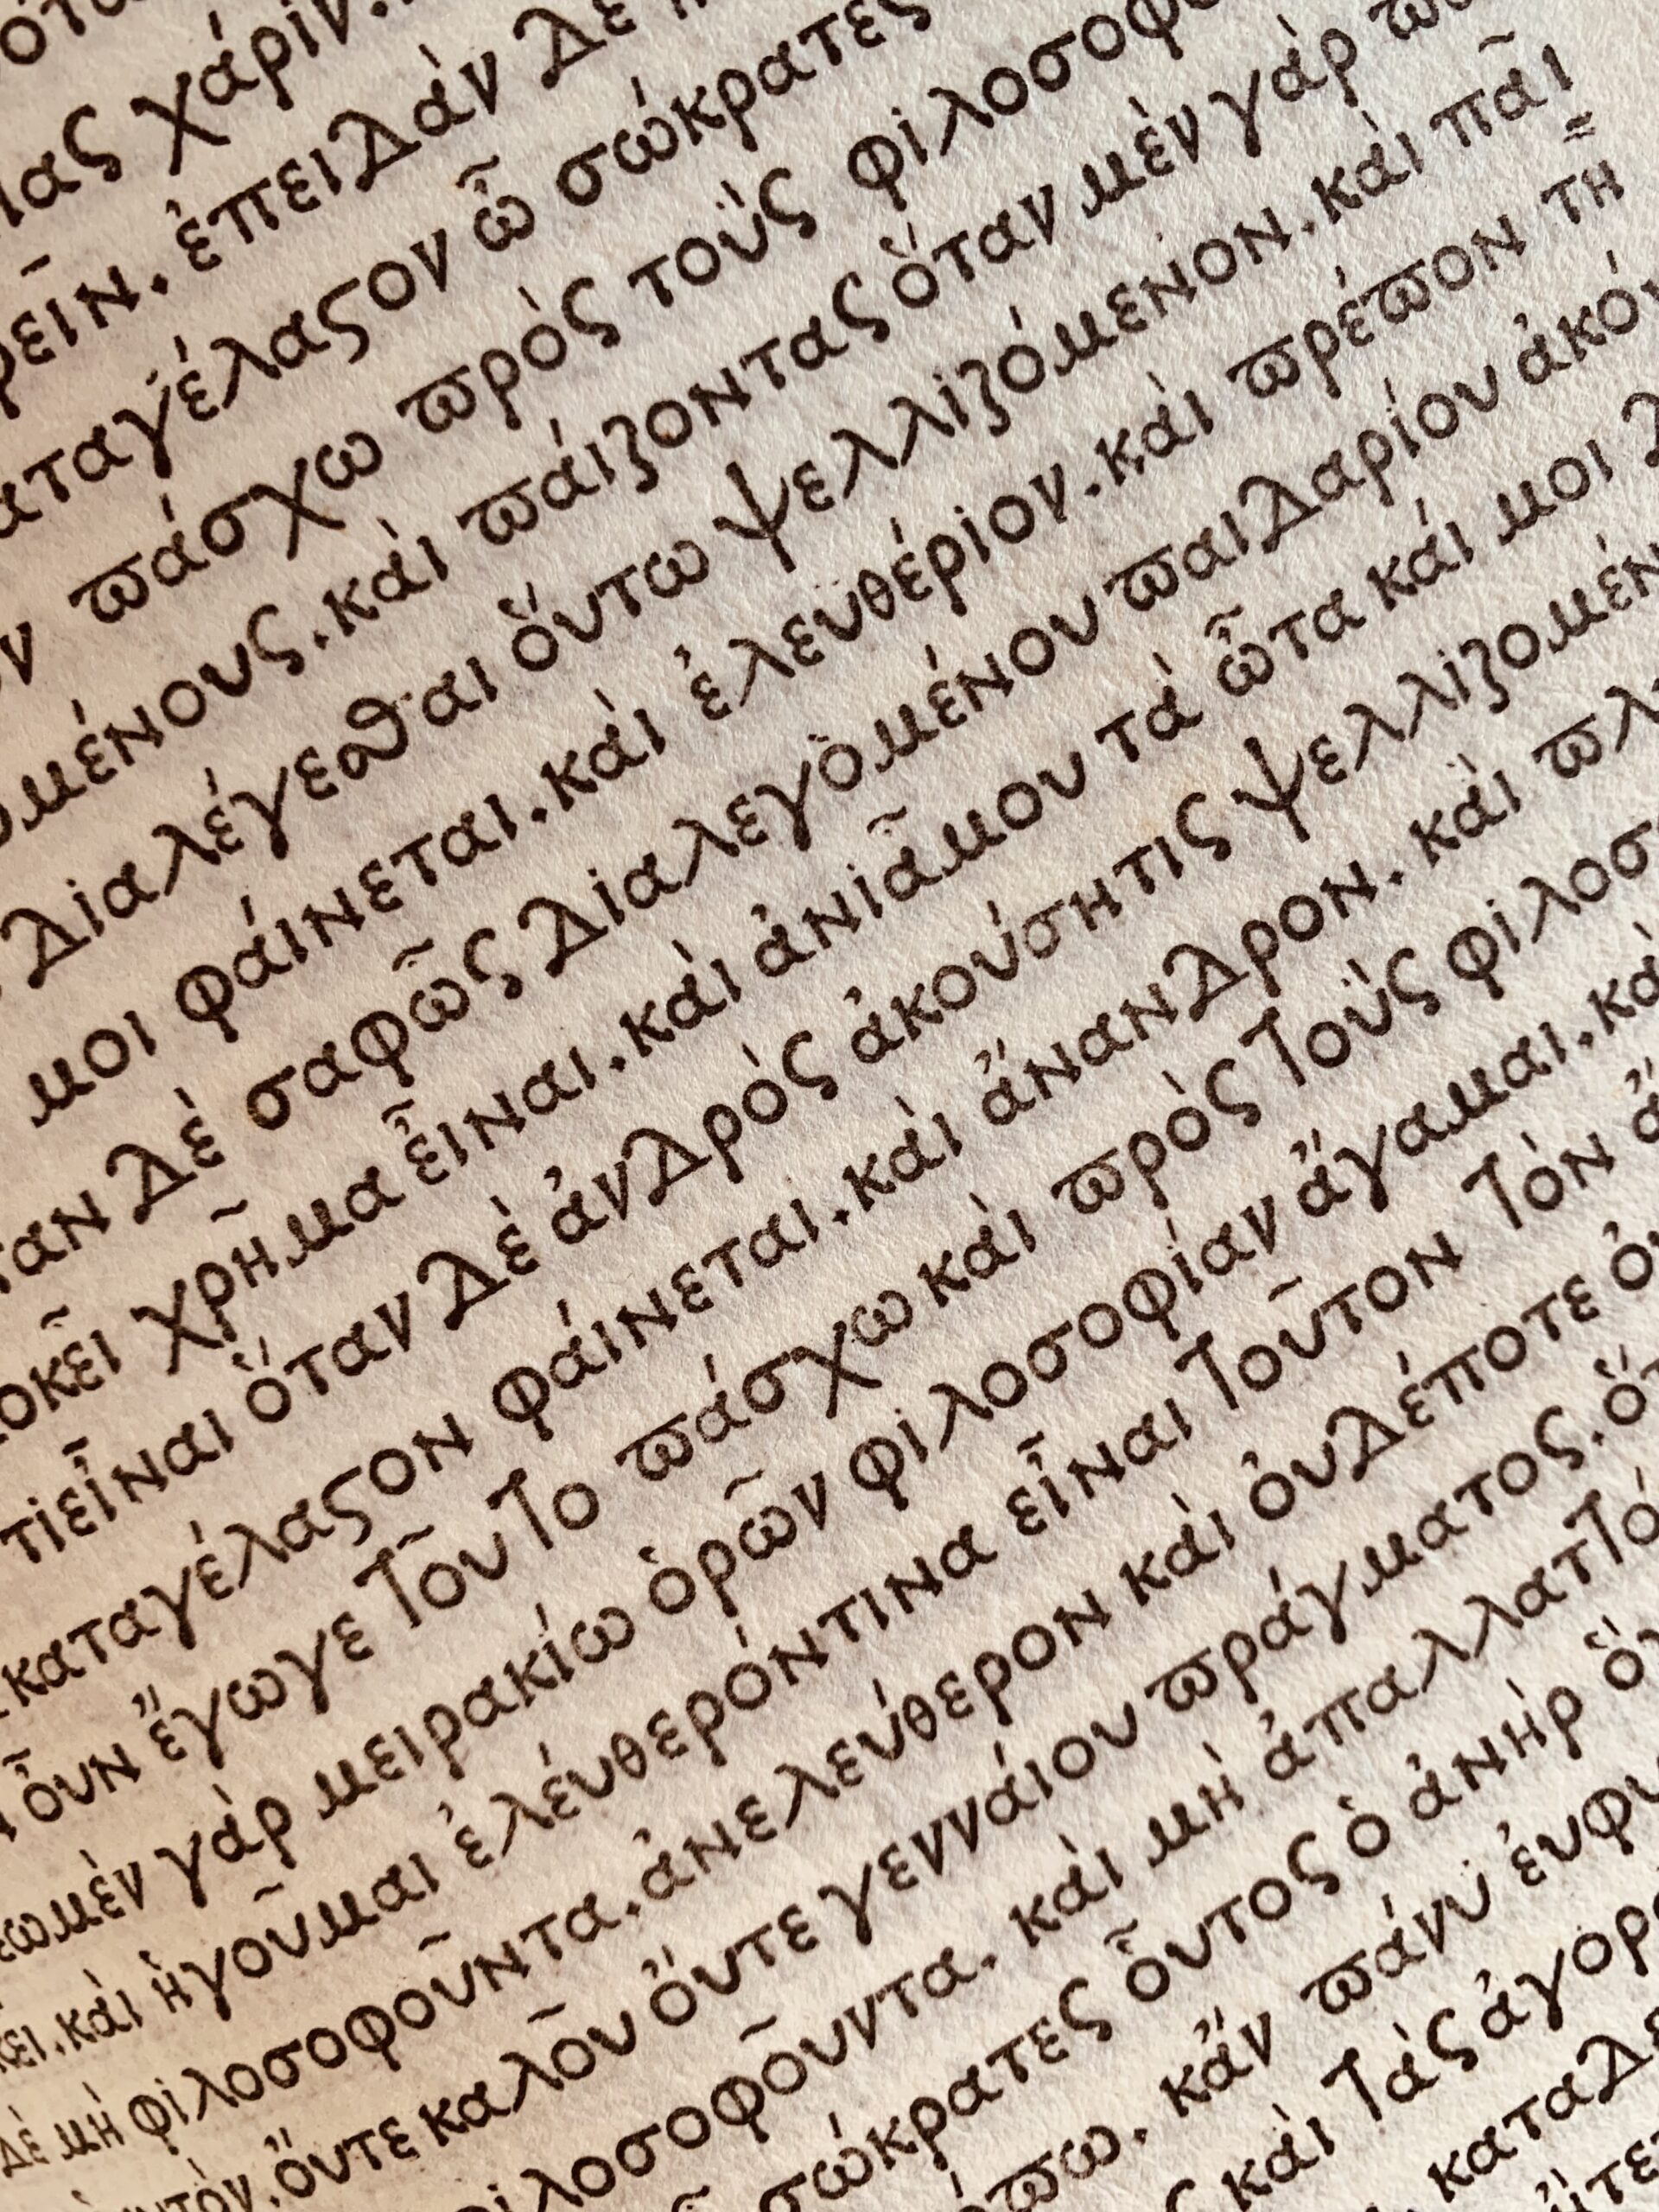 χάριν.
ἐπειδὰν δὲ
καταγέλαςον ὦ σώκρατες
πάσχω πρὸς τοὺς φιλοσοφ
ομένους.καὶ πάιζοντας ὅταν μὲν γὰρ
διαλέγεσθαι ὅυτω ψελλιζόμενον.καὶ παῖ
μοι φάινεται.καὶ ἐλευθέριον.καὶ πρέπον τῆ
ταν δὲ σαφῶς διαλεγομένου παιδαρίου ἀκού
δοκεῖ χρῆμα εἶναι.καὶ ἀνιᾶ μου τὰ ὦτα καί μοι
τι εἶναι ὅταν δὲ ἀνδρὸς ἀκούσητις ψελλιζομέν
καταγέλαςον φάινεται.καὶ ἄνανδρον.καὶ πλ
ὂυν ἔγωγε τοῦτο πάσχω καὶ πρὸς τοὺς φιλοσ
έω μὲν γὰρ μειρακίω ὁρῶν φιλοσοφίαν ἄγαμαι.κα
κει.καὶ ἡγοῦμαι ἐλέυθερόν τινα εἶναι τοῦτον τὸν ἄ
δὲ μὴ φιλοσοφοῦντα.ἀνελεύθερον καὶ ὀυδέποτε ὀυ
υτὸν.ὄυτε καλοῦ ὄυτε γεννάιου πράγματος.ὅτ
ιλοσοφοῦντα.καὶ μὴ ἀπαλλαττό
σώκρατες ὅυτος ὁ ἀνὴρ ὃ
κἂν πάνυ ἐυφυ
καὶ τὰς ἀγορ
καταδε